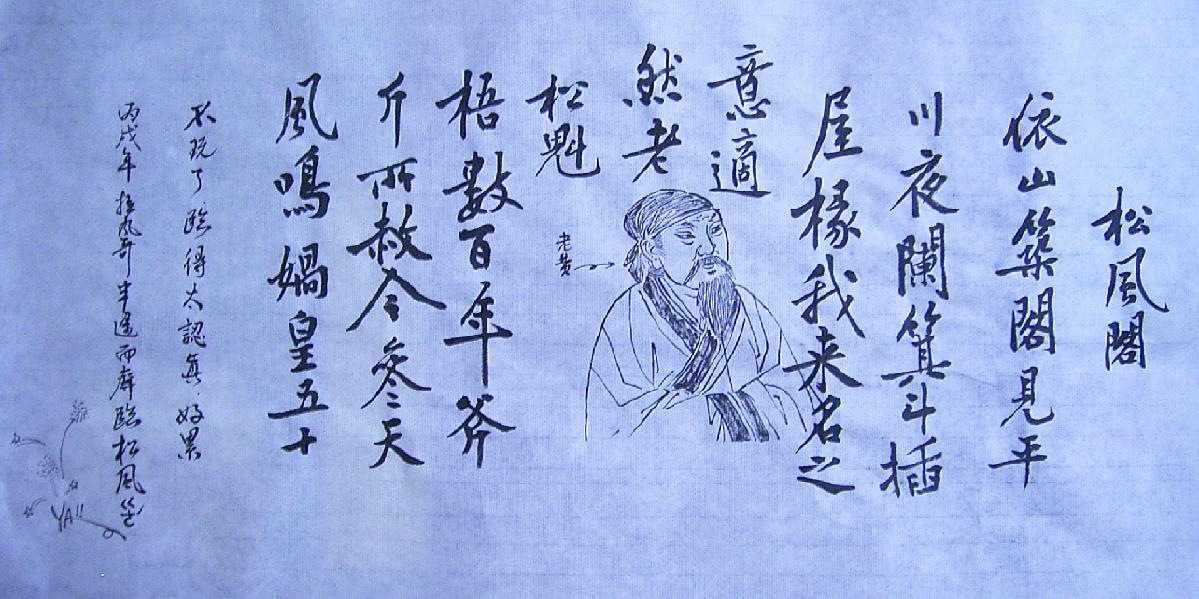 松風閣
依山築閣見平
川夜闌箕斗插
屋椽我来名之
意適
然老
老黃
松魁
梧數百年斧
斤所赦今參天
風鳴媧皇五十
不玩了臨得太認真.好累
丙戌年 半途而廢臨松風
YA!!